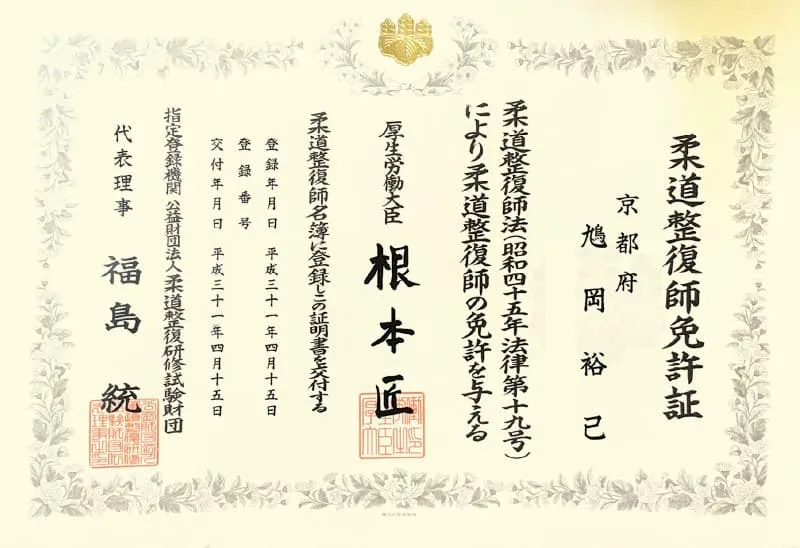 柔道整復師免許証
京都府
鳩岡裕己
柔道整復師法(昭和四十五年法律第十九号)
により柔道整復師の免許を与える
厚生労働大臣 根本匠
柔道整復師名簿に登録しこの証明書を交付する
登録年月日 平成三十一年四月十五日
登録番号
交付年月日 平成三十一年四月十五日
指定登録機関 公益財団法人柔道整復研修試験財団
代表理事 福島統